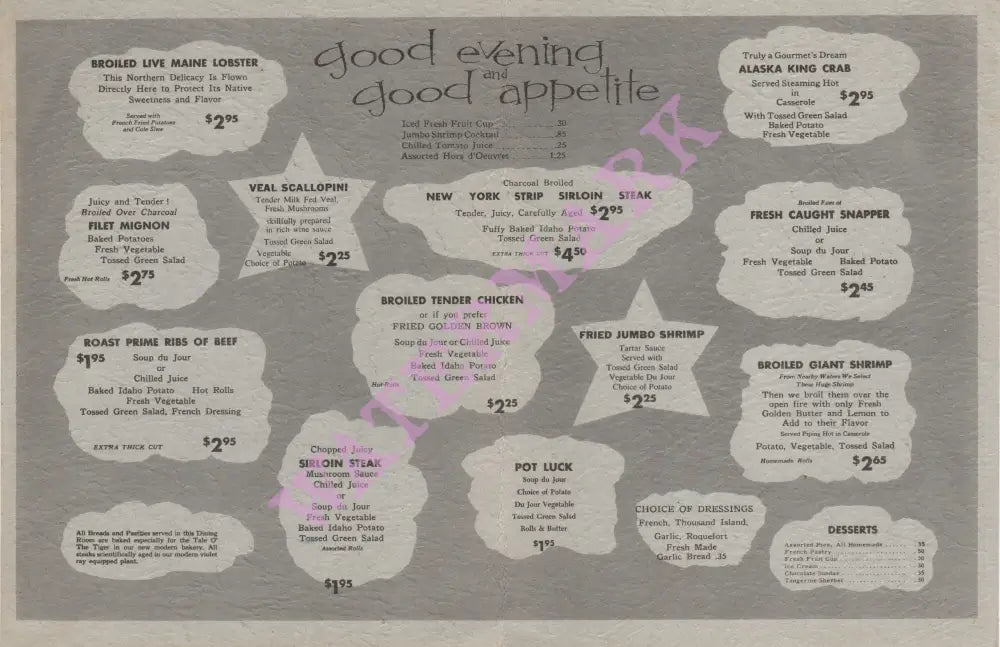 good evening
and
good appetite
Iced Fresh Fruit Cup .30
Jumbo Shrimp Cocktail .85
Chilled Tomato Juice .25
Assorted Hors d'Oeuvres 1.25
BROILED LIVE MAINE LOBSTER
This Northern Delicacy Is Flown
Directly Here to Protect Its Native
Sweetness and Flavor
Served with
French Fried Potatoes
and Cole Slaw
$2.95
Truly a Gourmet's Dream
ALASKA KING CRAB
Served Steaming Hot
in
Casserole
$2.95
With Tossed Green Salad
Baked Potato
Fresh Vegetable
Juicy and Tender!
Broiled Over Charcoal
FILET MIGNON
Baked Potatoes
Fresh Vegetable
Tossed Green Salad
Fresh Hot Rolls $2.75
VEAL SCALLOPINI
Tender Milk Fed Veal,
Fresh Mushrooms
skillfully prepared
in rich wine sauce
Tossed Green Salad
Vegetable
Choice of Potato $2.25
Charcoal Broiled
NEW YORK STRIP SIRLOIN STEAK
Tender, Juicy, Carefully Aged $2.95
Fuffy Baked Idaho Potato
Tossed Green Salad
EXTRA THICK CUT $4.50
Broiled Fuss of
FRESH CAUGHT SNAPPER
Chilled Juice
or
Soup du Jour
Fresh Vegetable Baked Potato
Tossed Green Salad
$2.45
BROILED TENDER CHICKEN
or if you prefer
FRIED GOLDEN BROWN
Soup du Jour or Chilled Juice
Fresh Vegetable
Baked Idaho Potato
Tossed Green Salad
Hot Rolls
$2.25
FRIED JUMBO SHRIMP
Tartar Sauce
Served with
Tossed Green Salad
Vegetable Du Jour
Choice of Potato
$2.25
ROAST PRIME RIBS OF BEEF
$1.95 Soup du Jour
or
Chilled Juice
Baked Idaho Potato Hot Rolls
Fresh Vegetable
Tossed Green Salad, French Dressing
EXTRA THICK CUT $2.95
BROILED GIANT SHRIMP
From Nearby Waters We Select
These Huge Shrimp
Then we broil them over the
open fire with only Fresh
Golden Butter and Lemon to
Add to their Flavor
Served Piping Hot in Casserole
Potato, Vegetable, Tossed Salad
Homemade Rolls $2.65
Chopped Juicy
SIRLOIN STEAK
Mushroom Sauce
Chilled Juice
or
Soup du Jour
Fresh Vegetable
Baked Idaho Potato
Tossed Green Salad
Assorted Rolls
$1.95
POT LUCK
Soup du Jour
Choice of Potato
Du Jour Vegetable
Tossed Green Salad
Rolls & Butter
$1.95
CHOICE OF DRESSINGS
French, Thousand Island,
Garlic, Roquefort
Fresh Made
Garlic Bread .35
DESSERTS
Assorted Pies, All Homemade .35
French Pastry .50
Fresh Fruit Cup .50
Ice Cream .30
Chocolate Sundae .35
Tangerine Sherbet .30
All Breads and Pastries served in this Dining
Room are baked especially for the Tale O'
The Tiger in our new modern bakery. All
steaks scientifically aged in our modern violet
ray equipped plant.
WATERMARK